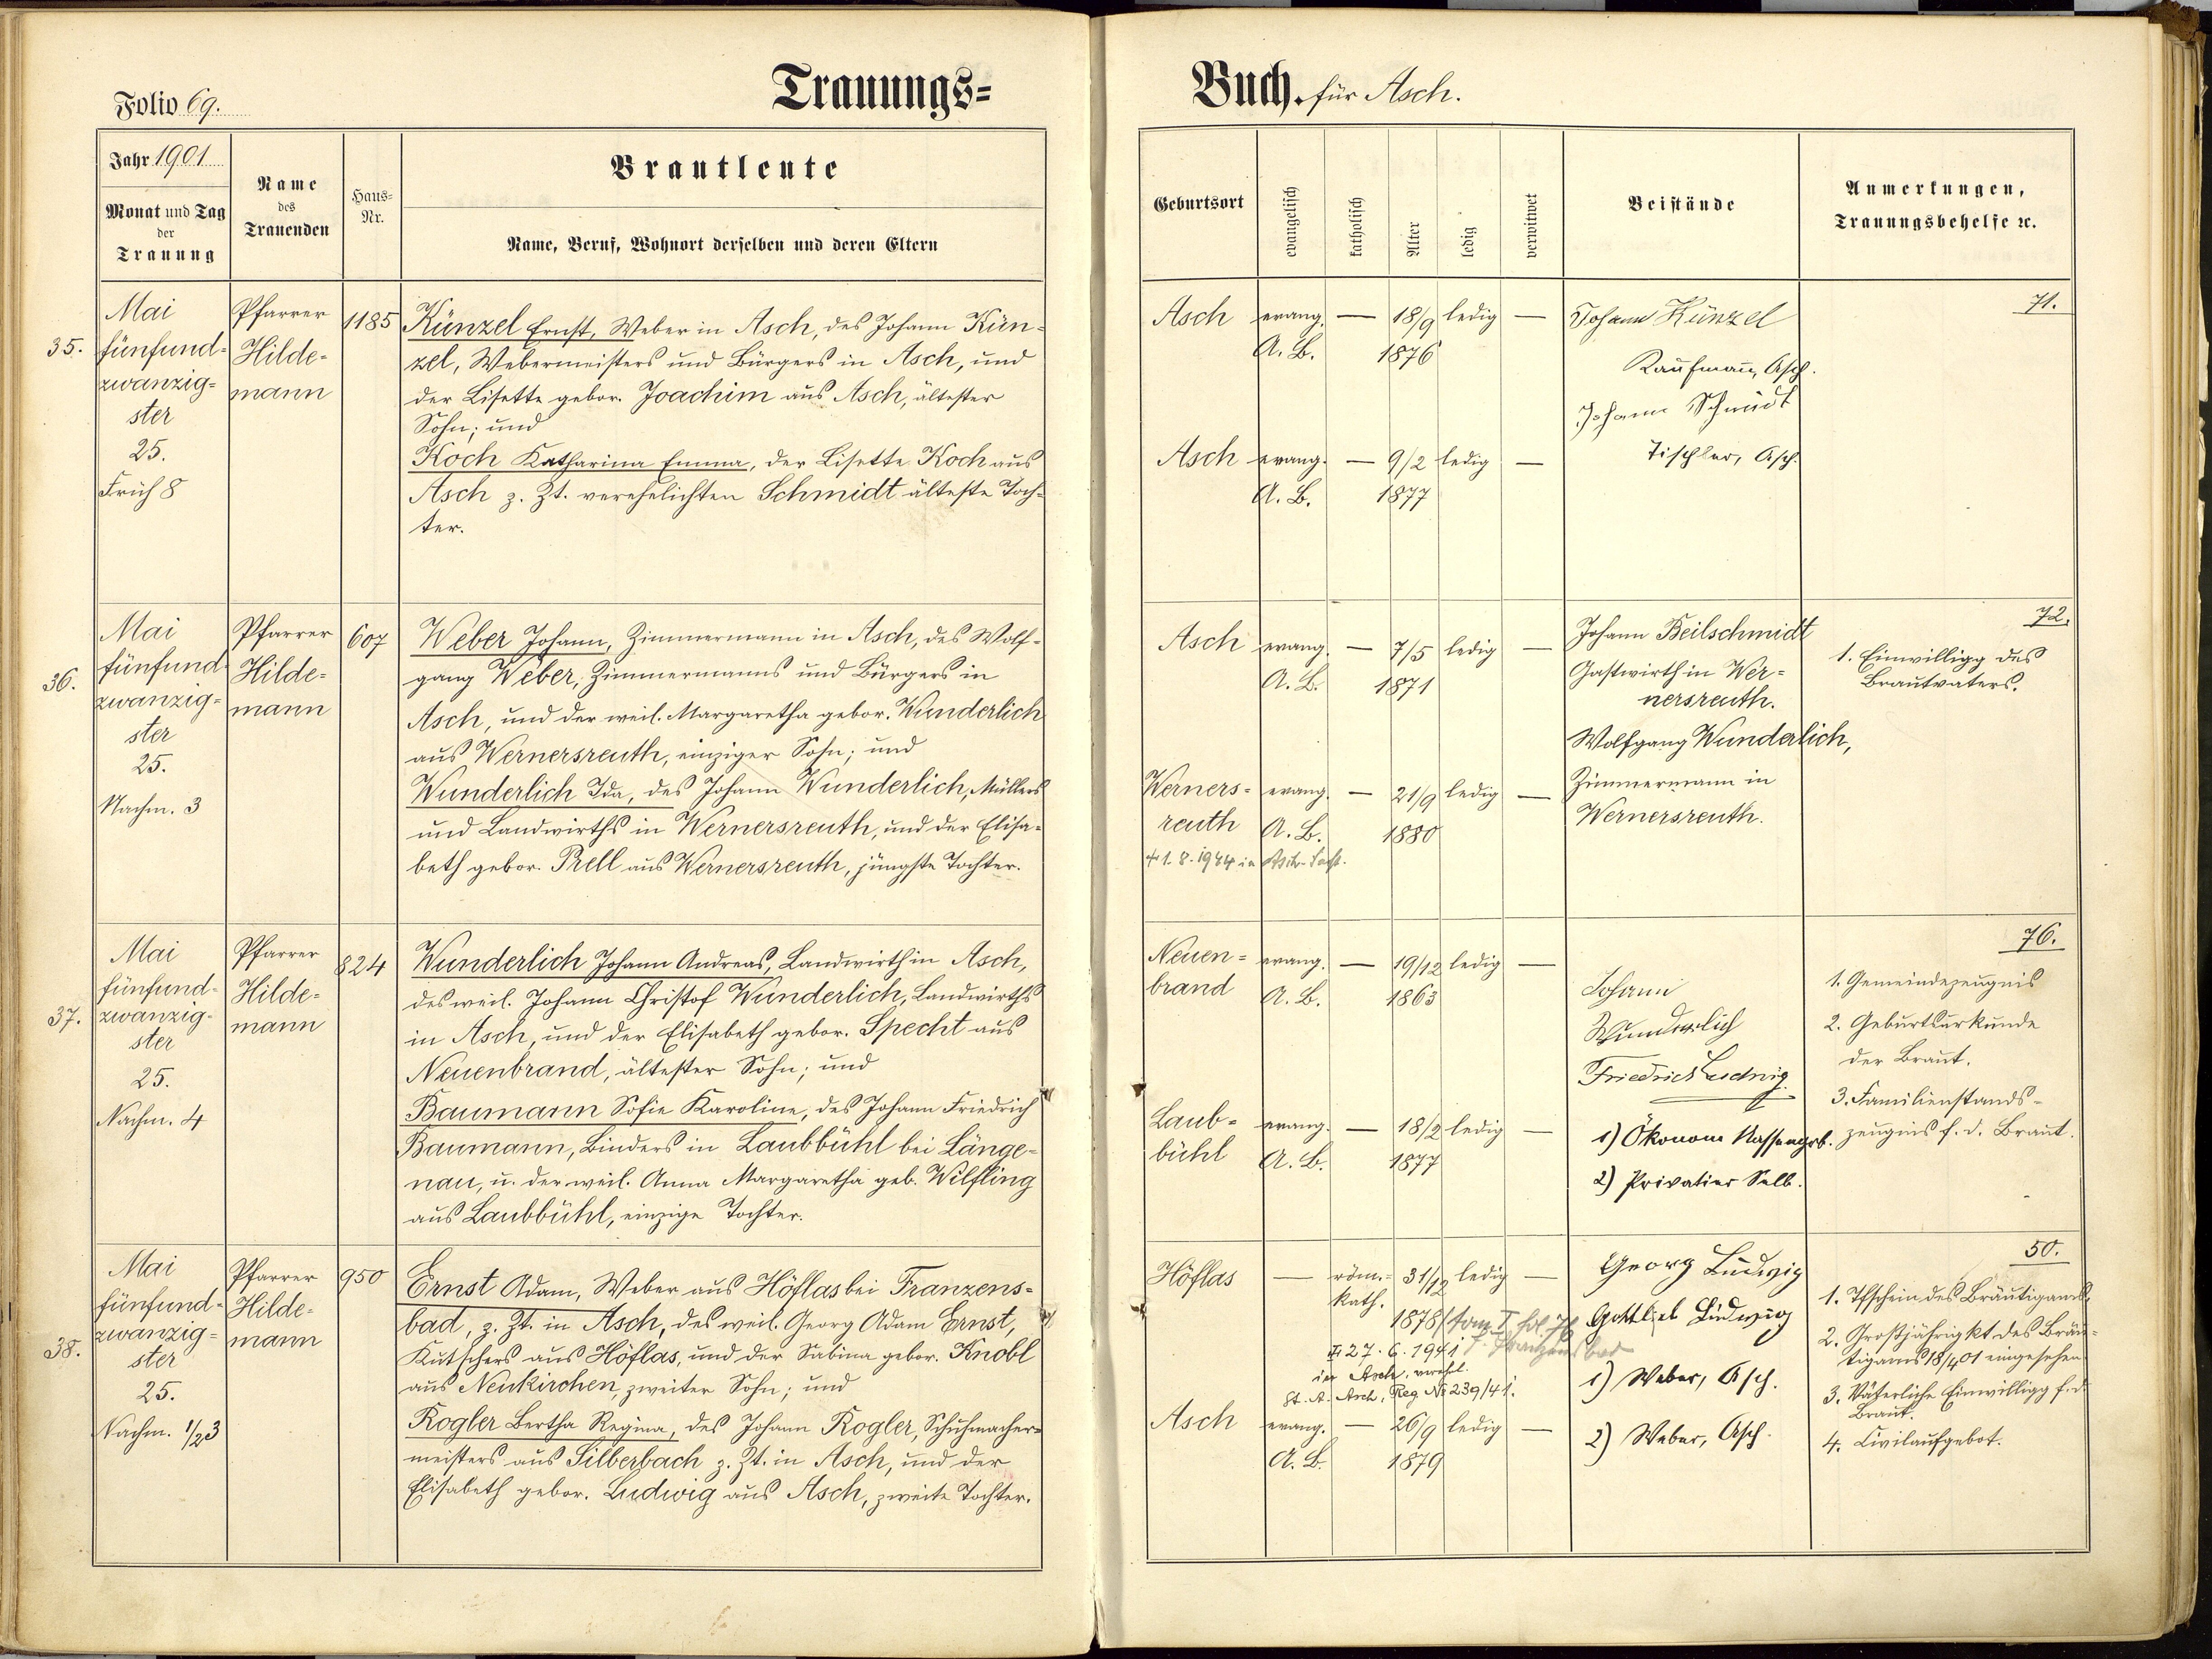 Folio 69.
Trauungs=
Buch. für Asch.
Jahr 1901
Monat und Tag
der
Trauung
Name
des
Trauenden
Haus=
Nr.
Brautleute
Name, Beruf, Wohnort derselben und deren Eltern
Geburtsort
evangelisch
katholisch
Alter
ledig
verwitwet
Beistände
Anmerkungen,
Trauungsbehelfe ec.
35.
Mai
fünfund=
zwanzig=
ster
25.
Früh 8
Pfarrer
Hilde=
mann
1185
Künzel Ernst, Weber in Asch, des Johann Kün=
zel, Webermeisters und Bürgers in Asch, und
der Lisette gebor. Joachim aus Asch, ältester
Sohn; und
Koch Katharina Emma, der Lisette Koch aus
Asch z. Zt. verehelichten Schmidt älteste Toch=
ter.
Asch evang. — 18/9 ledig —
A. B. 1876
Asch evang. — 9/2 ledig —
A. B. 1877
Johann Künzel
Kaufmann, Asch.
Johann Schmidt
Tischler, Asch.
71.
36.
Mai
fünfund
zwanzig=
ster
25.
Nachm. 3
Pfarrer
Hilde=
mann
607
Weber Johann, Zimmermann in Asch, des Wolf=
gang Weber, Zimmermanns und Bürgers in
Asch, und der weil. Margaretha gebor. Wunderlich
aus Wernersreuth, einziger Sohn; und
Wunderlich Ida, des Johann Wunderlich, Müllers
und Landwirths in Wernersreuth, und der Elisa=
beth gebor. Prell aus Wernersreuth, jüngste Tochter.
Asch evang. — 7/5 ledig —
A. B. 1871
Werners= evang. — 21/9 ledig —
reuth A. B. 1880
+ 1. 8. 1944 in Asch
Johann Beilschmidt
Gastwirth in Wer=
nersreuth.
Wolfgang Wunderlich,
Zimmermann in
Wernersreuth.
72.
1. Einwilligg des
Brautvaters.
37.
Mai
fünfund=
zwanzig=
ster
25.
Nachm. 4
Pfarrer
Hilde=
mann
824
Wunderlich Johann Andreas, Landwirth in Asch,
des weil. Johann Christof Wunderlich, Landwirths
in Asch, und der Elisabeth gebor. Specht aus
Neuenbrand, ältester Sohn; und
Baumann Sofie Karoline, des Johann Friedrich
Baumann, Binders in Laubbühl bei Länge=
nau, u. der weil. Anna Margaretha geb. Wilfling
aus Laubbühl, einzige Tochter.
Neuen= evang. — 19/12 ledig —
brand A. B. 1863
Laub= evang. — 18/2 ledig —
bühl A. B. 1877
Johann
Wunderlich
Friedrich Ludwig
1) Ökonom Nassengrb.
2) Privatier Selb.
76.
1. Gemeindezeugnis
2. Geburtsurkunde
der Braut.
3. Familienstands=
zeugnis f. d. Braut.
38.
Mai
fünfund=
zwanzig=
ster
25.
Nachm. 1/2 3
Pfarrer
Hilde=
mann
950
Ernst Adam, Weber aus Höflas bei Franzens=
bad, z. Zt. in Asch, des weil. Georg Adam Ernst,
Kutschers aus Höflas, und der Sabina gebor. Knobl
aus Neukirchen, zweiter Sohn; und
Rogler Bertha Regina, des Johann Rogler, Schuhmacher=
meisters aus Silberbach z. Zt. in Asch, und der
Elisabeth gebor. Ludwig aus Asch, zweite Tochter.
Höflas — röm.= 31/12 ledig —
kath.
1878 (tom I fol. 76
27. 6. 1941 Franzensbad
in Asch, verehl.
St. A. Asch, Reg Nr 239/41.
Asch evang. — 26/9 ledig —
A. B. 1879
Georg Ludwig
Gottlieb Ludwig
1) Weber, Asch.
2) Weber, Asch.
50.
1. Tfschein des Bräutigams
2. Großjährigkt des Bräu=
tigams 18/4 01 eingesehen
3. Väterliche Einwilligg f. d.
Braut.
4. Civilaufgebot.